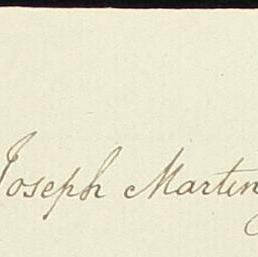 Joseph Martin